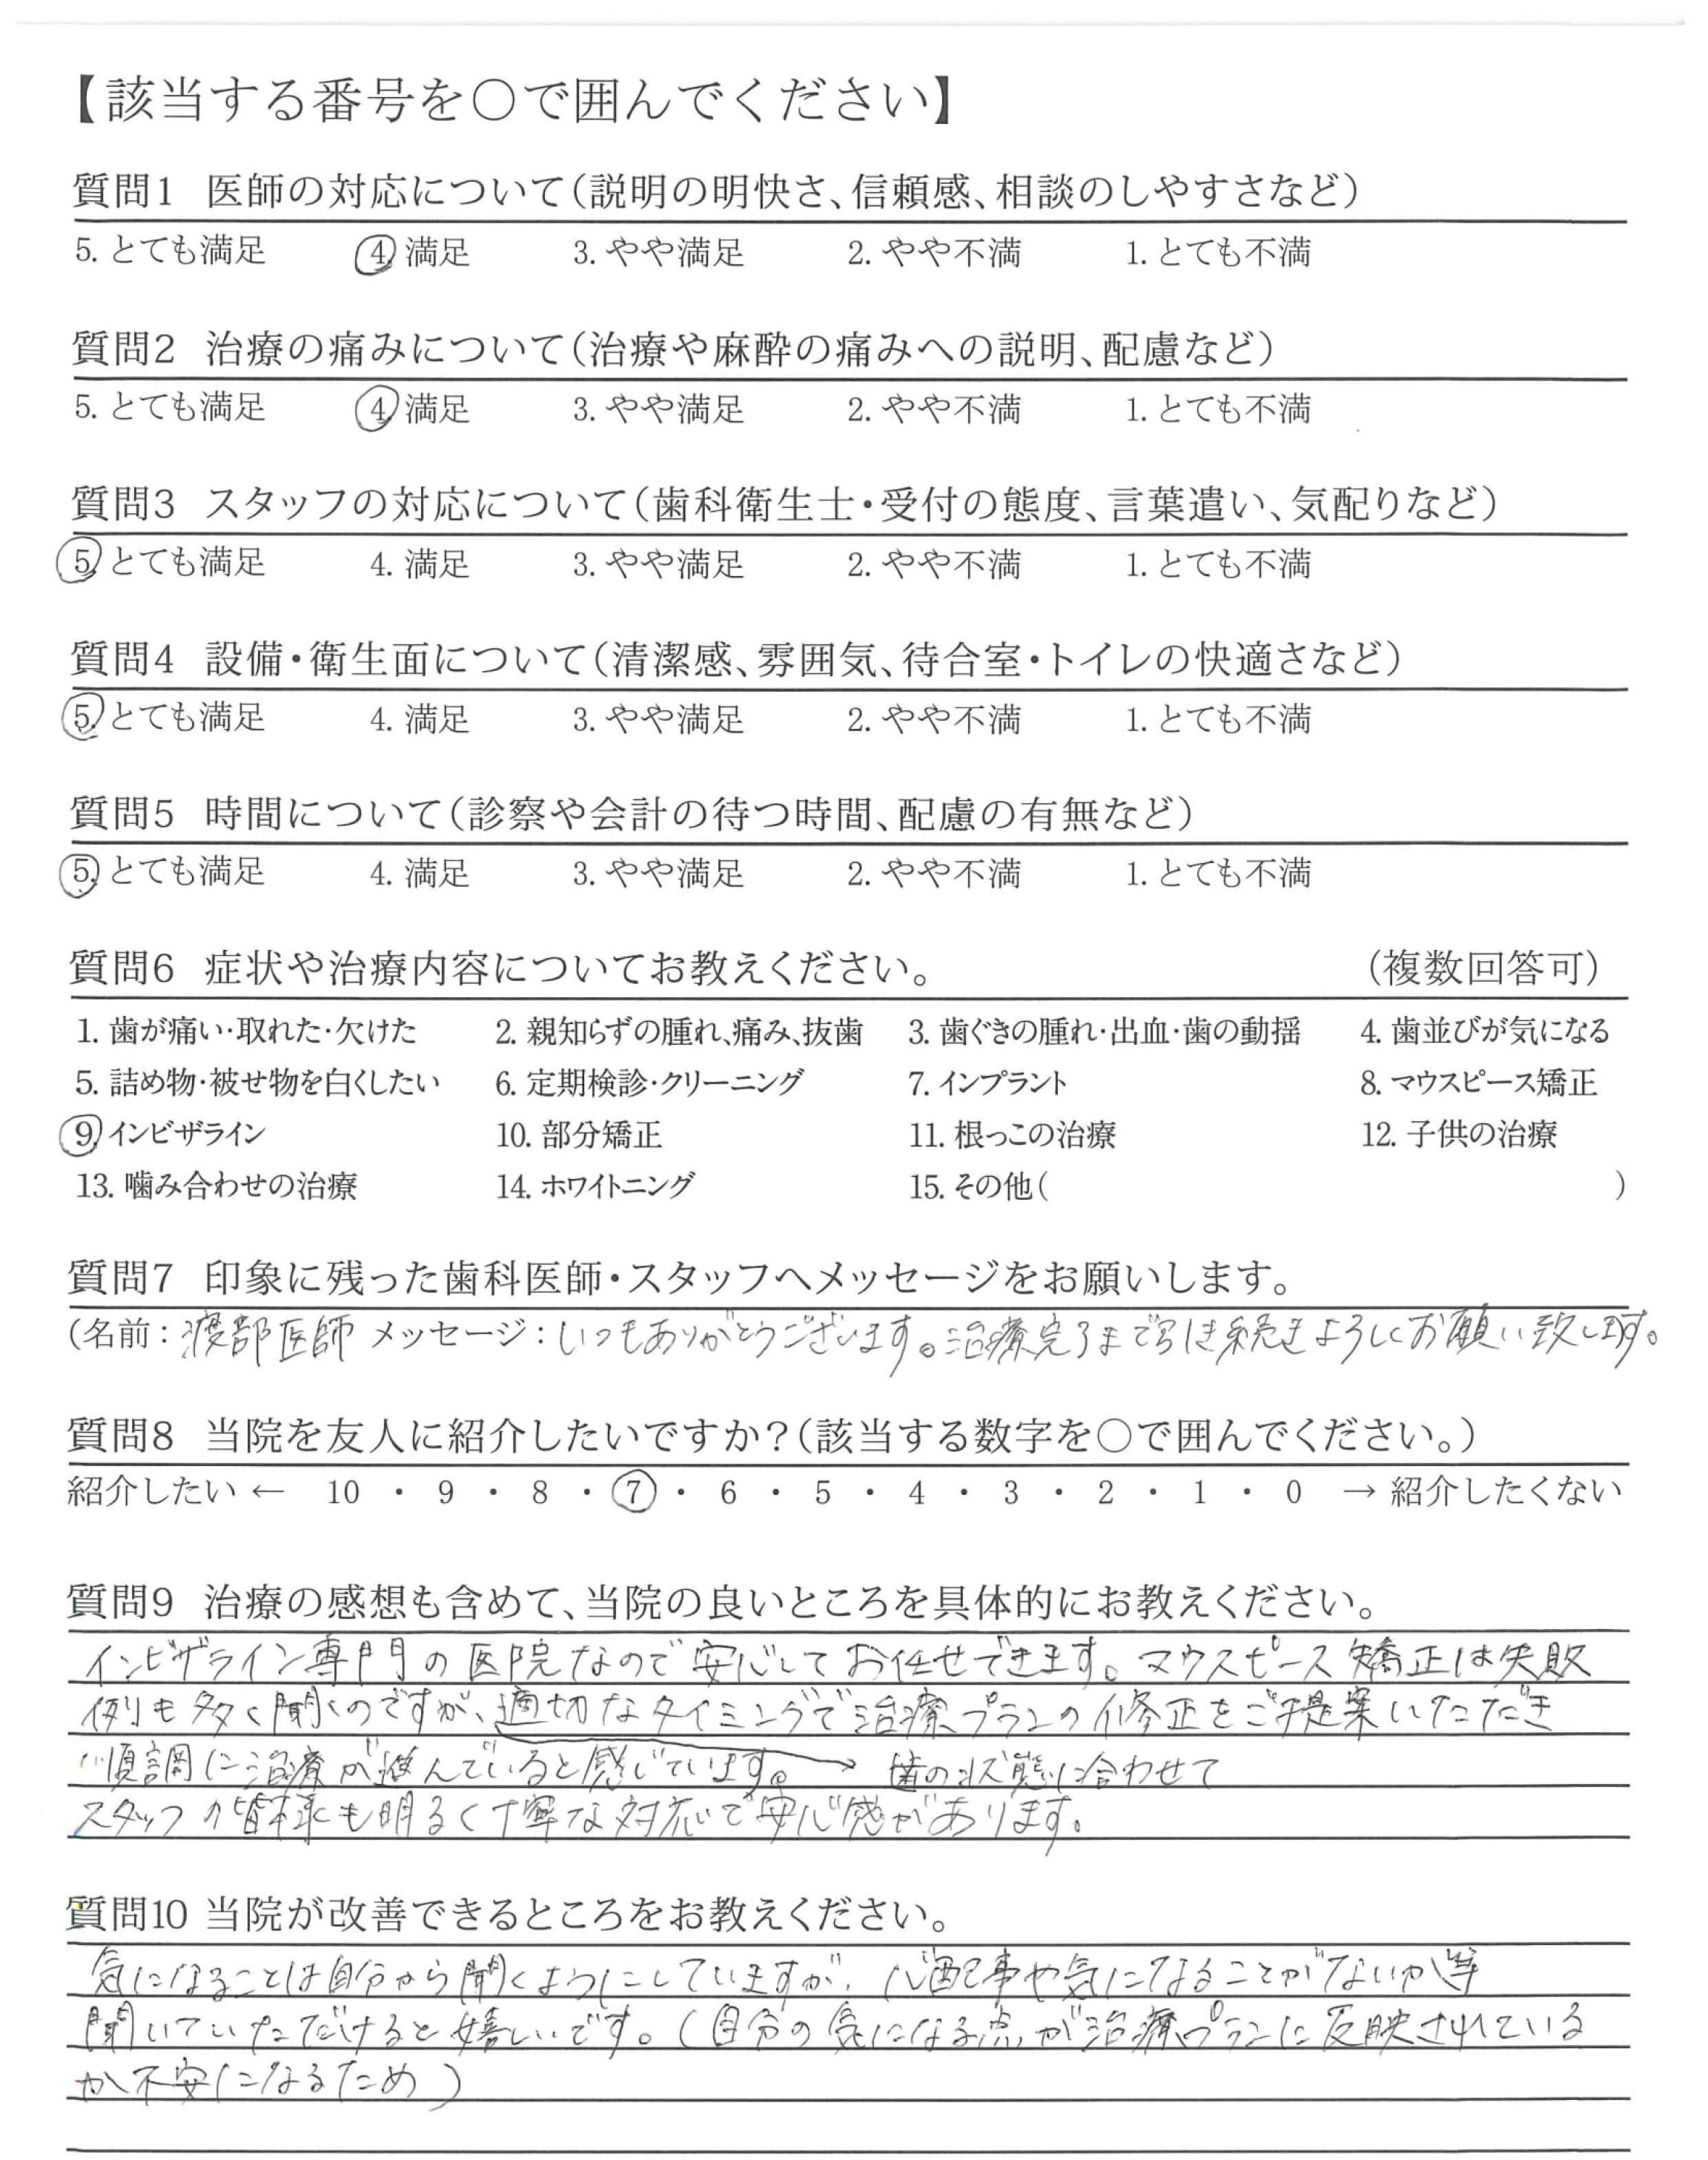 【該当する番号を○で囲んでください】
質問1 医師の対応について(説明の明快さ、信頼感、相談のしやすさなど)
5. とても満足 4. 満足 3. やや満足 2. やや不満 1. とても不満
質問2 治療の痛みについて(治療や麻酔の痛みへの説明、配慮など)
5. とても満足 4. 満足 3. やや満足 2. やや不満 1. とても不満
質問3 スタッフの対応について(歯科衛生士・受付の態度、言葉遣い、気配りなど)
5. とても満足 4. 満足 3. やや満足 2. やや不満 1. とても不満
質問4 設備・衛生面について(清潔感、雰囲気、待合室・トイレの快適さなど)
5. とても満足 4. 満足 3. やや満足 2. やや不満 1. とても不満
質問5 時間について(診察や会計の待つ時間、配慮の有無など)
5. とても満足 4. 満足 3. やや満足 2. やや不満 1. とても不満
質問6 症状や治療内容についてお教えください。 (複数回答可)
1. 歯が痛い・取れた・欠けた 2. 親知らずの腫れ、痛み、抜歯 3. 歯ぐきの腫れ・出血・歯の動揺 4. 歯並びが気になる
5. 詰め物・被せ物を白くしたい 6. 定期検診・クリーニング 7. インプラント 8. マウスピース矯正
9. インビザライン 10. 部分矯正 11. 根っこの治療 12. 子供の治療
13. 噛み合わせの治療 14. ホワイトニング 15. その他( )
質問7 印象に残った歯科医師・スタッフへメッセージをお願いします。
(名前:渡部医師 メッセージ:いつもありがとうございます。治療完了まで引き続きよろしくお願い致します。
質問8 当院を友人に紹介したいですか?(該当する数字を○で囲んでください。)
紹介したい ← 10 ・ 9 ・ 8 ・ 7 ・ 6 ・ 5 ・ 4 ・ 3 ・ 2 ・ 1 ・ 0 → 紹介したくない
質問9 治療の感想も含めて、当院の良いところを具体的にお教えください。
インビザライン専門の医院なので安心してお任せできます。マウスピース矯正は失敗
例も多く聞くのですが、適切なタイミングで治療プランの修正をご提案いただき
順調に治療が進んでいると感じています。→ 歯の状態に合わせて
スタッフの皆様も明るく丁寧な対応で安心感があります。
質問10 当院が改善できるところをお教えください。
気になることは自分から聞くようにしていますが、心配事や気になることがないか等
聞いていただけると嬉しいです。(自分の気になる点が治療プランに反映されている
か不安になるため)